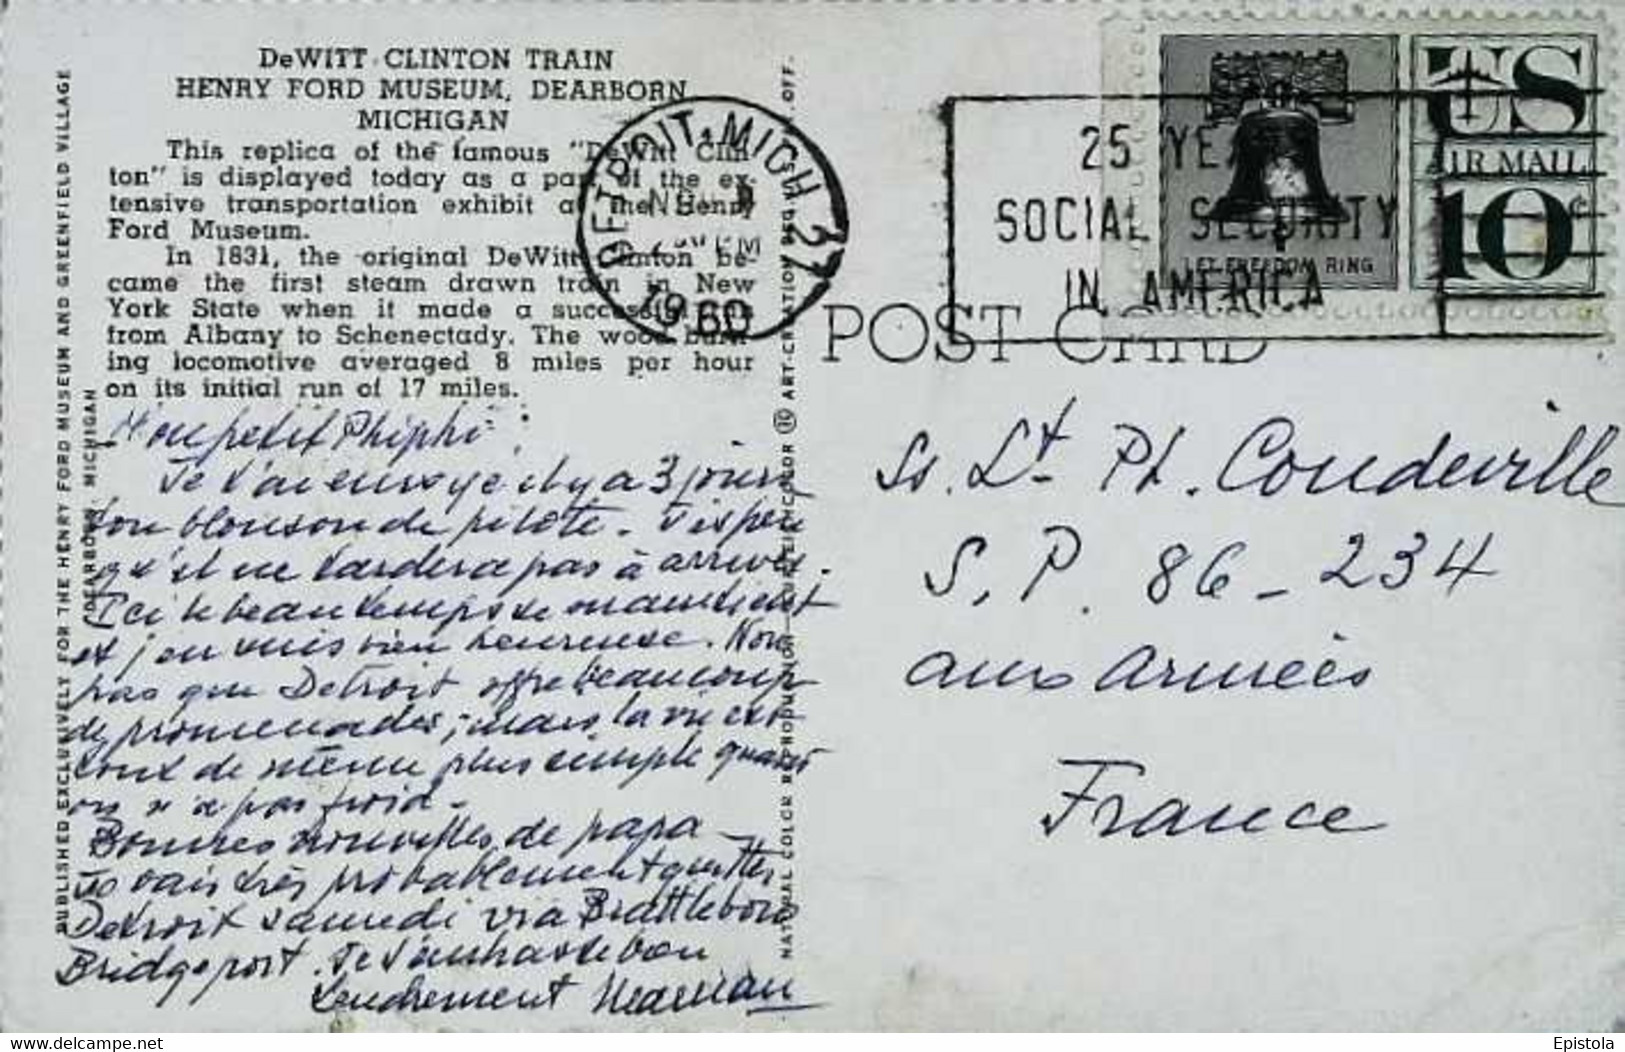 DeWITT CLINTON TRAIN
HENRY FORD MUSEUM, DEARBORN
MICHIGAN
This replica of the famous "DeWitt Clin-
ton" is displayed today as a part of the ex-
tensive transportation exhibit at the Henry
Ford Museum.
In 1831, the original DeWitt Clinton be-
came the first steam drawn train in New
York State when it made a successful run
from Albany to Schenectady. The wood burn-
ing locomotive averaged 8 miles per hour
on its initial run of 17 miles.
PUBLISHED EXCLUSIVELY FOR THE HENRY FORD MUSEUM AND GREENFIELD VILLAGE
DEARBORN, MICHIGAN
Mon petit Phiphi :
Je t'ai envoyé il y a 3 jours
ton blouson de pilote. J'espère
qu'il ne tardera pas à arriver.
Ici le beau temps se maintient
et j'en suis bien heureuse. Non
pas que Detroit offre beaucoup
de promenades, mais la vie est
tout de même plus simple quand
on n'a pas froid.
Bonnes nouvelles de papa
Je vais très probablement quitter
Detroit samedi via Brattleboro
Bridgeport. Je t'embrasse bien
tendrement Maman
NATURAL COLOR REPRODUCTION CURTEICHCOLOR ® ART-CREATION REG. U.S. PAT. OFF.
DETROIT, MICH 27
PM
1960
25 YEARS
SOCIAL SECURITY
IN AMERICA
US
AIR MAIL
10¢
LET FREEDOM RING
POST CARD
Ss. Lt. Ph. Coudeville
S. P. 86-234
aux Armées
France
https://www.delcampe.net
Epistola